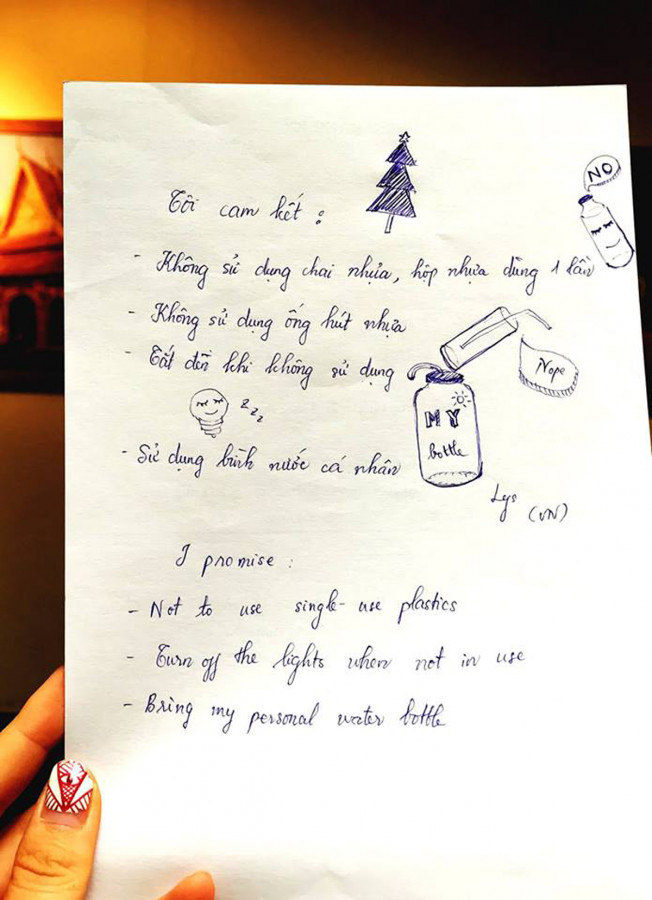 Tôi cam kết :
NO
- Không sử dụng chai nhựa, hộp nhựa dùng 1 lần
- Không sử dụng ống hút nhựa
- Tắt đèn khi không sử dụng
Nope
MY
bottle
z z z
- Sử dụng bình nước cá nhân
Lys (VN)
I promise :
- Not to use single-use plastics
- Turn off the lights when not in use
- Bring my personal water bottle